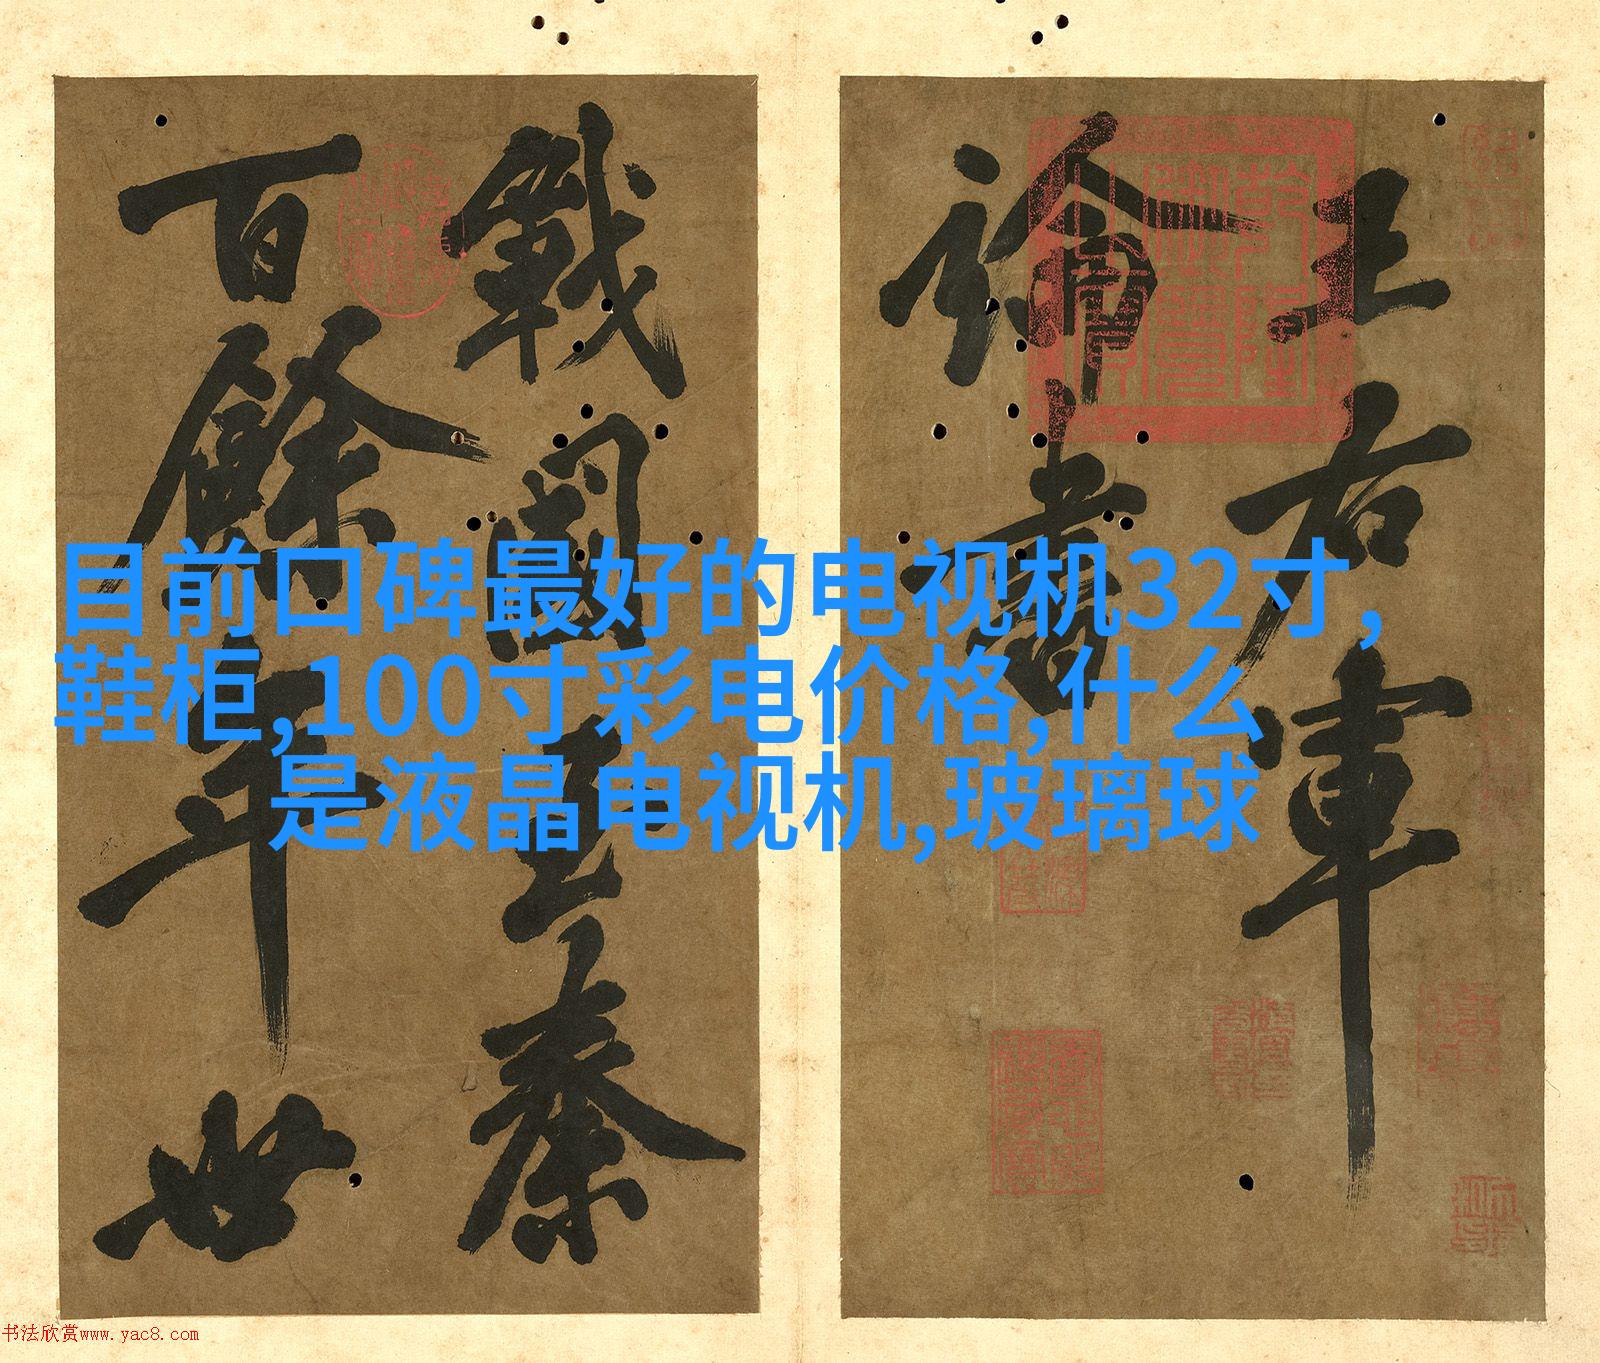 目前口碑最好的电视机32寸,
鞋柜,100寸彩电价格,什么
是液晶电视机,玻璃球
王右軍
論書
戰國至秦
百餘年世
乾隆御覽之寶
书法欣赏www.yac8.com